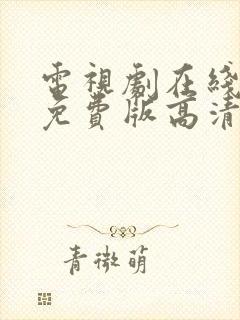 電視劇在綫
免費版高清
青微萌